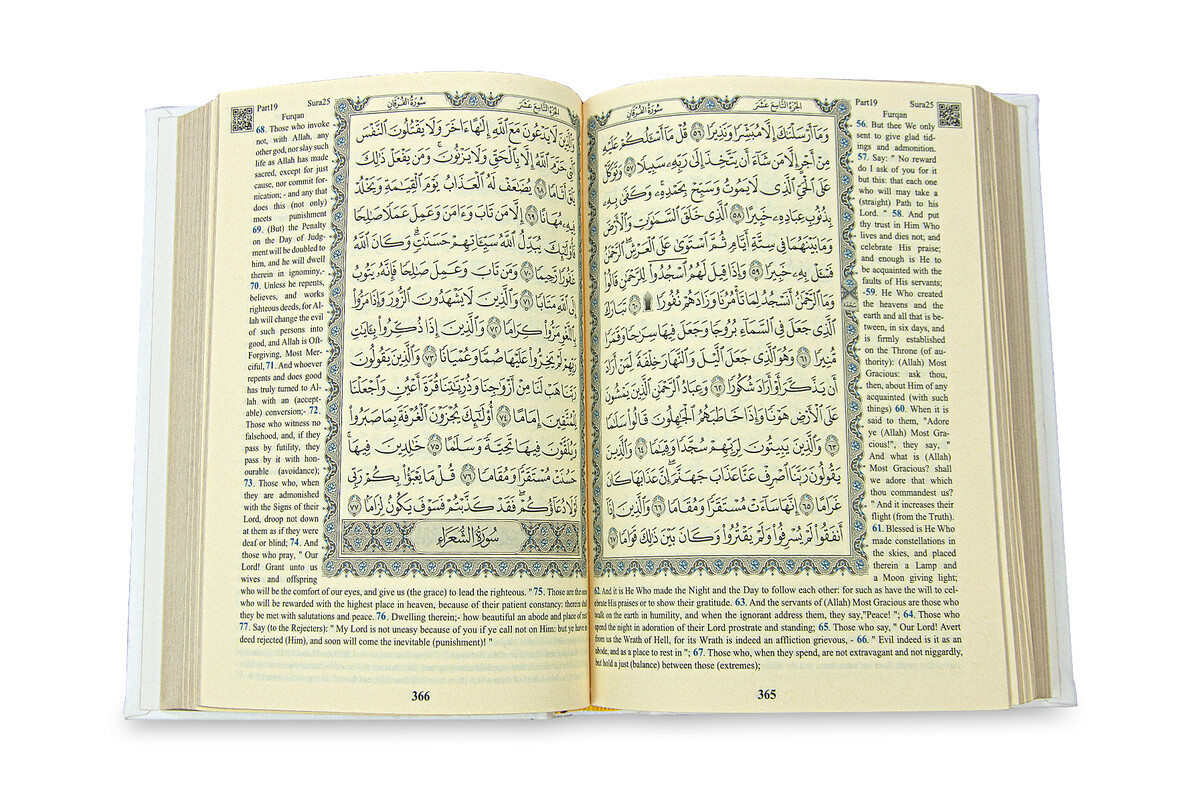 Part19 Sura25
Furqan
الجزء التاسع عشر سورة الفرقان
وَمَآ أَرْسَلْنَٰكَ إِلَّا مُبَشِّرًا وَنَذِيرًا ٥٦ قُلْ مَآ أَسْـَٔلُكُمْ عَلَيْهِ
مِنْ أَجْرٍ إِلَّا مَن شَآءَ أَن يَتَّخِذَ إِلَىٰ رَبِّهِۦ سَبِيلًا ٥٧ وَتَوَكَّلْ
عَلَى ٱلْحَىِّ ٱلَّذِى لَا يَمُوتُ وَسَبِّحْ بِحَمْدِهِۦ ۚ وَكَفَىٰ بِهِۦ
بِذُنُوبِ عِبَادِهِۦ خَبِيرًا ٥٨ ٱلَّذِى خَلَقَ ٱلسَّمَٰوَٰتِ وَٱلْأَرْضَ
وَمَا بَيْنَهُمَا فِى سِتَّةِ أَيَّامٍ ثُمَّ ٱسْتَوَىٰ عَلَى ٱلْعَرْشِ ۚ ٱلرَّحْمَٰنُ
فَسْـَٔلْ بِهِۦ خَبِيرًا ٥٩ وَإِذَا قِيلَ لَهُمُ ٱسْجُدُوا۟ لِلرَّحْمَٰنِ قَالُوا۟
وَمَا ٱلرَّحْمَٰنُ أَنَسْجُدُ لِمَا تَأْمُرُنَا وَزَادَهُمْ نُفُورًا ۩ ٦٠ تَبَارَكَ
ٱلَّذِى جَعَلَ فِى ٱلسَّمَآءِ بُرُوجًا وَجَعَلَ فِيهَا سِرَٰجًا وَقَمَرًا
مُّنِيرًا ٦١ وَهُوَ ٱلَّذِى جَعَلَ ٱلَّيْلَ وَٱلنَّهَارَ خِلْفَةً لِّمَنْ أَرَادَ
أَن يَذَّكَّرَ أَوْ أَرَادَ شُكُورًا ٦٢ وَعِبَادُ ٱلرَّحْمَٰنِ ٱلَّذِينَ يَمْشُونَ
عَلَى ٱلْأَرْضِ هَوْنًا وَإِذَا خَاطَبَهُمُ ٱلْجَٰهِلُونَ قَالُوا۟ سَلَٰمًا
٦٣ وَٱلَّذِينَ يَبِيتُونَ لِرَبِّهِمْ سُجَّدًا وَقِيَٰمًا ٦٤ وَٱلَّذِينَ
يَقُولُونَ رَبَّنَا ٱصْرِفْ عَنَّا عَذَابَ جَهَنَّمَ ۖ إِنَّ عَذَابَهَا كَانَ
غَرَامًا ٦٥ إِنَّهَا سَآءَتْ مُسْتَقَرًّا وَمُقَامًا ٦٦ وَٱلَّذِينَ إِذَآ
أَنفَقُوا۟ لَمْ يُسْرِفُوا۟ وَلَمْ يَقْتُرُوا۟ وَكَانَ بَيْنَ ذَٰلِكَ قَوَامًا ٦٧
56. But thee We only
sent to give glad tid-
ings and admonition.
57. Say: " No reward
do I ask of you for it
but this: that each one
who will may take a
(straight) Path to his
Lord. " 58. And put
thy trust in Him Who
lives and dies not; and
celebrate His praise;
and enough is He to
be acquainted with the
faults of His servants;
-59. He Who created
the heavens and the
earth and all that is be-
tween, in six days, and
is firmly established
on the Throne (of au-
thority): (Allah) Most
Gracious: ask thou,
then, about Him of any
acquainted (with such
things) 60. When it is
said to them, "Adore
ye (Allah) Most Gra-
cious!", they say, "
And what is (Allah)
Most Gracious? shall
we adore that which
thou commandest us?
" And it increases their
flight (from the Truth).
61. Blessed is He Who
made constellations in
the skies, and placed
therein a Lamp and
a Moon giving light;
62 And it is He Who made the Night and the Day to follow each other: for such as have the will to cel-
ebrate His praises or to show their gratitude. 63. And the servants of (Allah) Most Gracious are those who
walk on the earth in humility, and when the ignorant address them, they say,"Peace! "; 64. Those who
spend the night in adoration of their Lord prostrate and standing; 65. Those who say, " Our Lord! Avert
from us the Wrath of Hell, for its Wrath is indeed an affliction grievous, - 66. " Evil indeed is it as an
abode, and as a place to rest in "; 67. Those who, when they spend, are not extravagant and not niggardly,
but hold a just (balance) between those (extremes);
365
Part19 Sura25
Furqan
الجزء التاسع عشر سورة الفرقان
وَٱلَّذِينَ لَا يَدْعُونَ مَعَ ٱللَّهِ إِلَٰهًا ءَاخَرَ وَلَا يَقْتُلُونَ ٱلنَّفْسَ
ٱلَّتِى حَرَّمَ ٱللَّهُ إِلَّا بِٱلْحَقِّ وَلَا يَزْنُونَ ۚ وَمَن يَفْعَلْ ذَٰلِكَ
يَلْقَ أَثَامًا ٦٨ يُضَٰعَفْ لَهُ ٱلْعَذَابُ يَوْمَ ٱلْقِيَٰمَةِ وَيَخْلُدْ
فِيهِۦ مُهَانًا ٦٩ إِلَّا مَن تَابَ وَءَامَنَ وَعَمِلَ عَمَلًا صَٰلِحًا
فَأُو۟لَٰٓئِكَ يُبَدِّلُ ٱللَّهُ سَيِّـَٔاتِهِمْ حَسَنَٰتٍ ۗ وَكَانَ ٱللَّهُ
غَفُورًا رَّحِيمًا ٧٠ وَمَن تَابَ وَعَمِلَ صَٰلِحًا فَإِنَّهُۥ يَتُوبُ
إِلَى ٱللَّهِ مَتَابًا ٧١ وَٱلَّذِينَ لَا يَشْهَدُونَ ٱلزُّورَ وَإِذَا مَرُّوا۟
بِٱللَّغْوِ مَرُّوا۟ كِرَامًا ٧٢ وَٱلَّذِينَ إِذَا ذُكِّرُوا۟ بِـَٔايَٰتِ
رَبِّهِمْ لَمْ يَخِرُّوا۟ عَلَيْهَا صُمًّا وَعُمْيَانًا ٧٣ وَٱلَّذِينَ يَقُولُونَ
رَبَّنَا هَبْ لَنَا مِنْ أَزْوَٰجِنَا وَذُرِّيَّٰتِنَا قُرَّةَ أَعْيُنٍ وَٱجْعَلْنَا
لِلْمُتَّقِينَ إِمَامًا ٧٤ أُو۟لَٰٓئِكَ يُجْزَوْنَ ٱلْغُرْفَةَ بِمَا صَبَرُوا۟
وَيُلَقَّوْنَ فِيهَا تَحِيَّةً وَسَلَٰمًا ٧٥ خَٰلِدِينَ فِيهَا ۚ
حَسُنَتْ مُسْتَقَرًّا وَمُقَامًا ٧٦ قُلْ مَا يَعْبَؤُا۟ بِكُمْ رَبِّى
لَوْلَا دُعَآؤُكُمْ ۖ فَقَدْ كَذَّبْتُمْ فَسَوْفَ يَكُونُ لِزَامًۢا ٧٧
سُورَةُ الشُّعَرَاءِ
68. Those who invoke
not, with Allah, any
other god, nor slay such
life as Allah has made
sacred, except for just
cause, nor commit for-
nication; - and any that
does this (not only)
meets punishment
69. (But) the Penalty
on the Day of Judg-
ment will be doubled to
him, and he will dwell
therein in ignominy,-
70. Unless he repents,
believes, and works
righteous deeds, for Al-
lah will change the evil
of such persons into
good, and Allah is Oft-
Forgiving, Most Mer-
ciful,71. And whoever
repents and does good
has truly turned to Al-
lah with an (accept-
able) conversion;- 72.
Those who witness no
falsehood, and, if they
pass by futility, they
pass by it with hon-
ourable (avoidance);
73. Those who, when
they are admonished
with the Signs of their
Lord, droop not down
at them as if they were
deaf or blind; 74. And
those who pray, " Our
Lord! Grant unto us
wives and offspring
who will be the comfort of our eyes, and give us (the grace) to lead the righteous. "75. Those are the ones
who will be rewarded with the highest place in heaven, because of their patient constancy: therein shall
they be met with salutations and peace. 76. Dwelling therein;- how beautiful an abode and place of rest
77. Say (to the Rejecters): " My Lord is not uneasy because of you if ye call not on Him: but ye have in-
deed rejected (Him), and soon will come the inevitable (punishment)! "
366